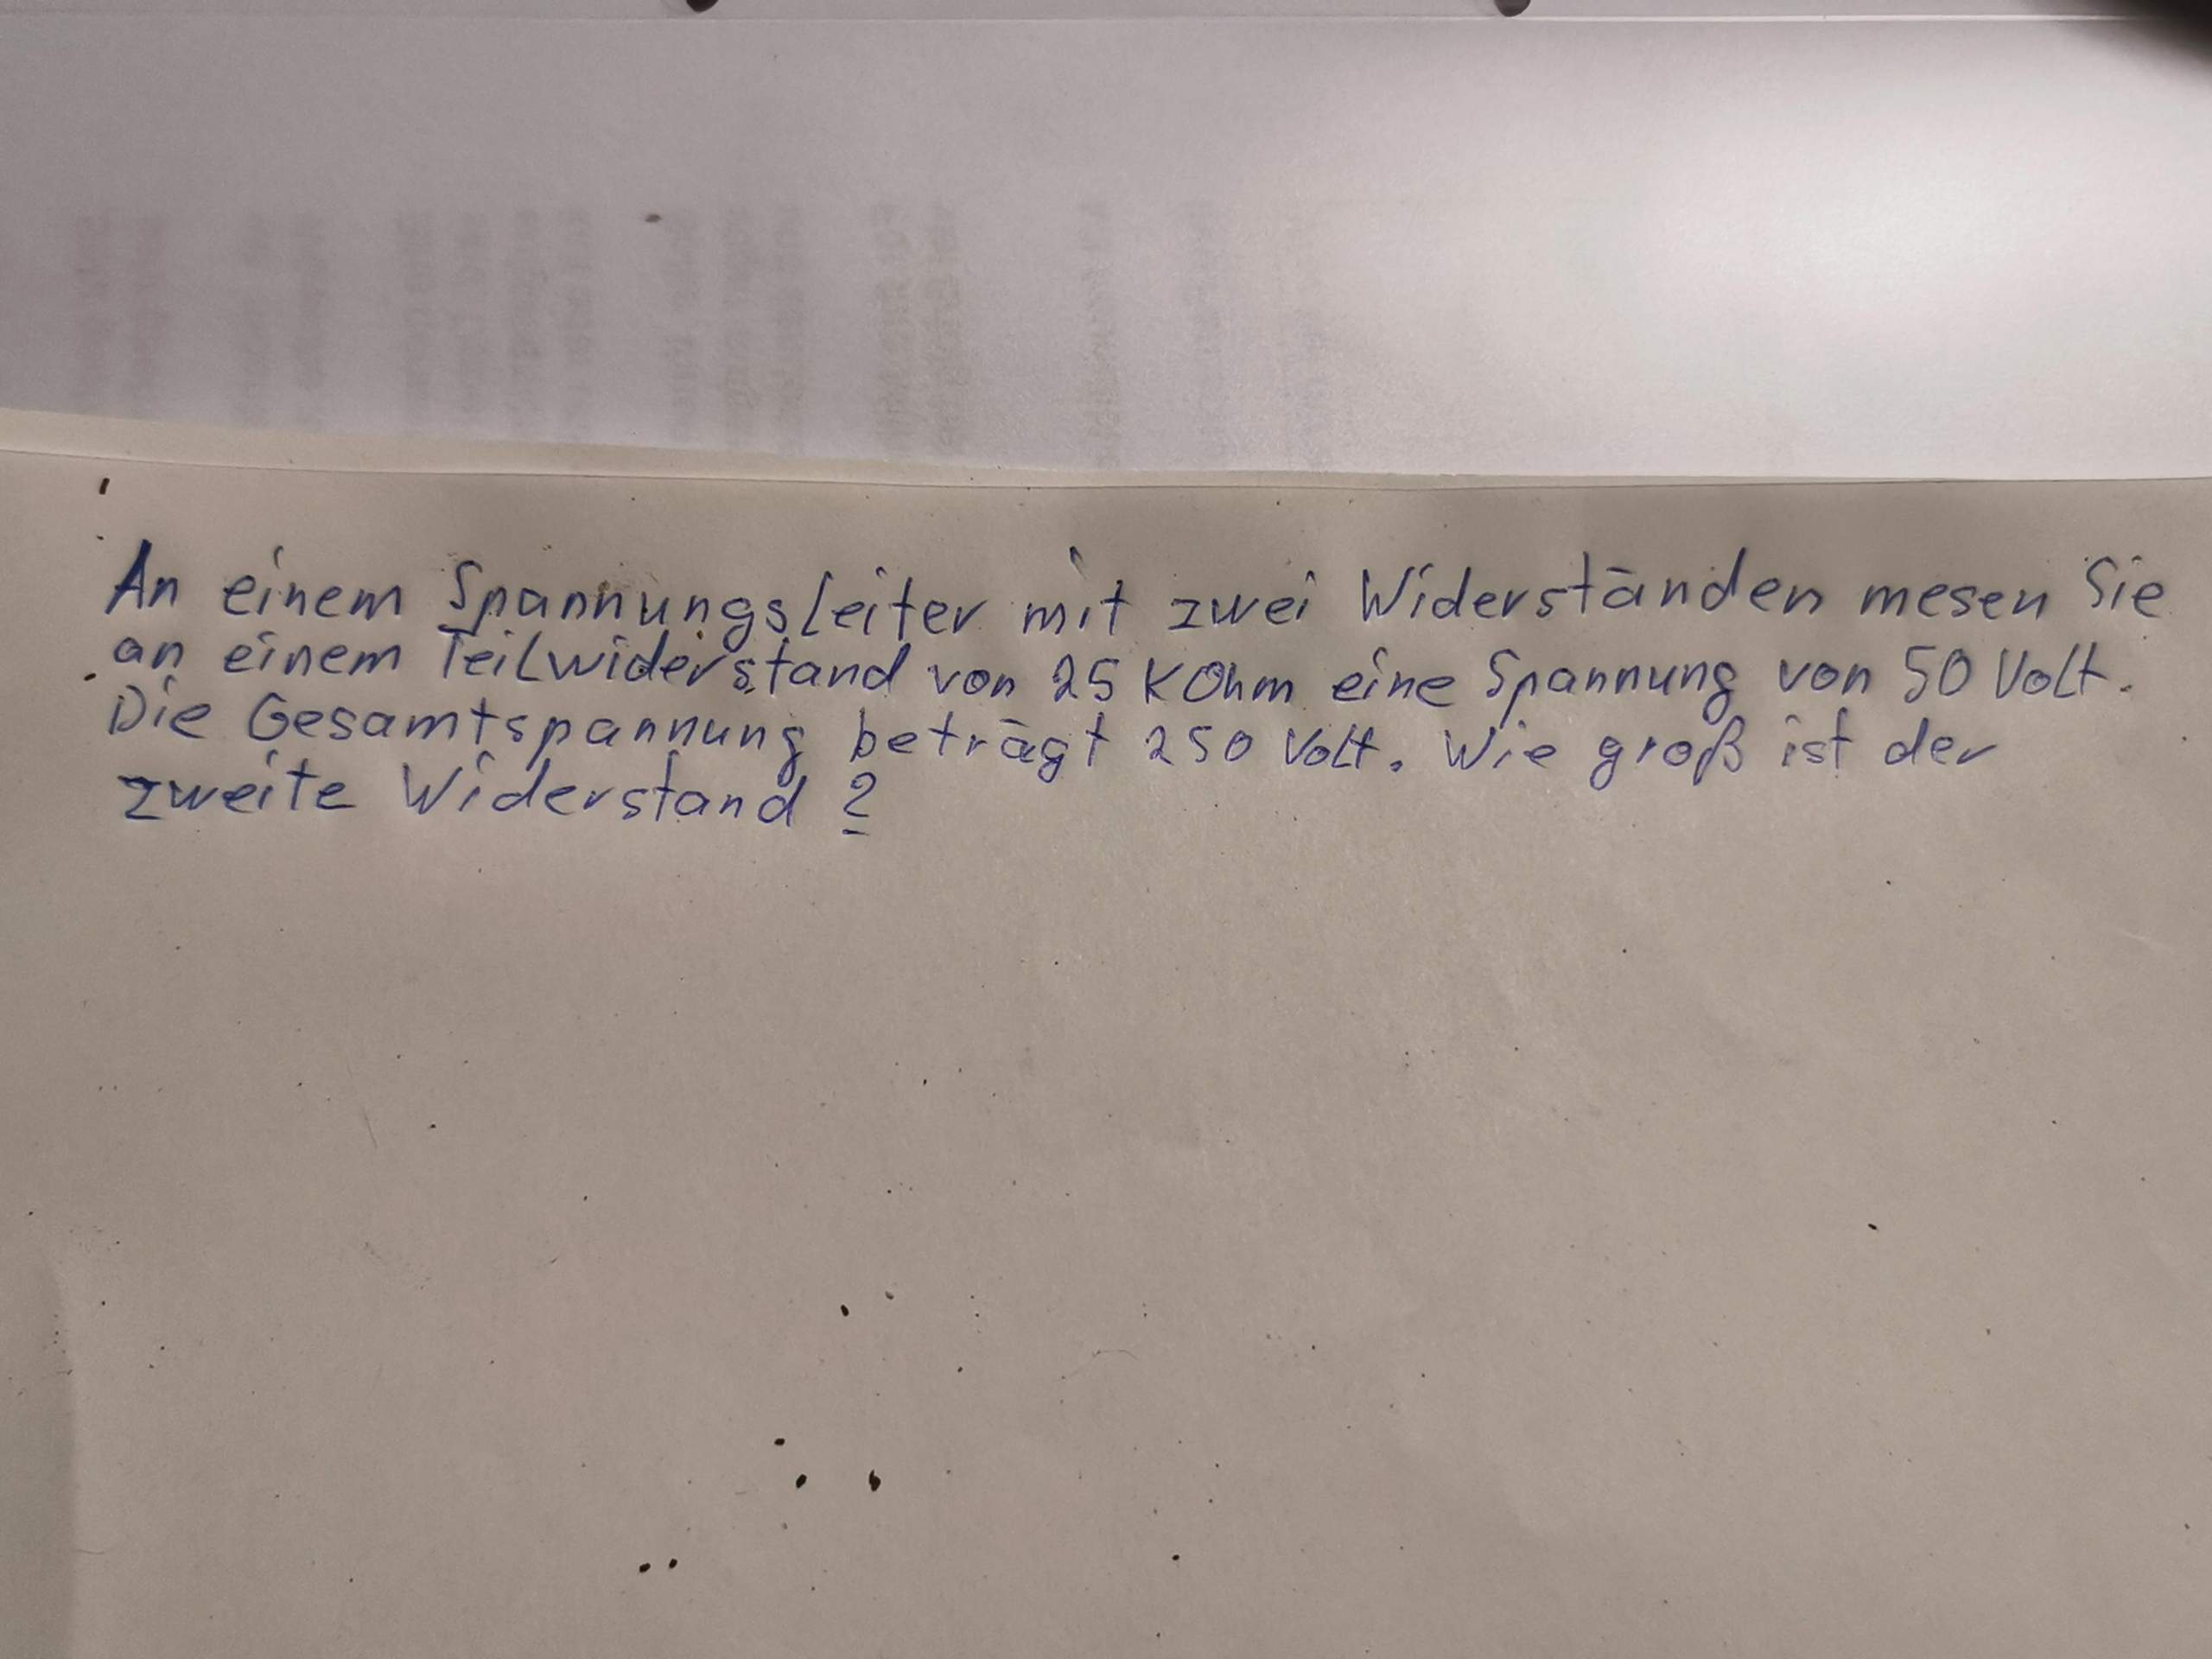 An einem Spannungsleiter mit zwei Widerständen mesen Sie
an einem Teilwiderstand von 25 KOhm eine Spannung von 50 Volt.
Die Gesamtspannung beträgt 250 Volt. Wie groß ist der
zweite Widerstand ?